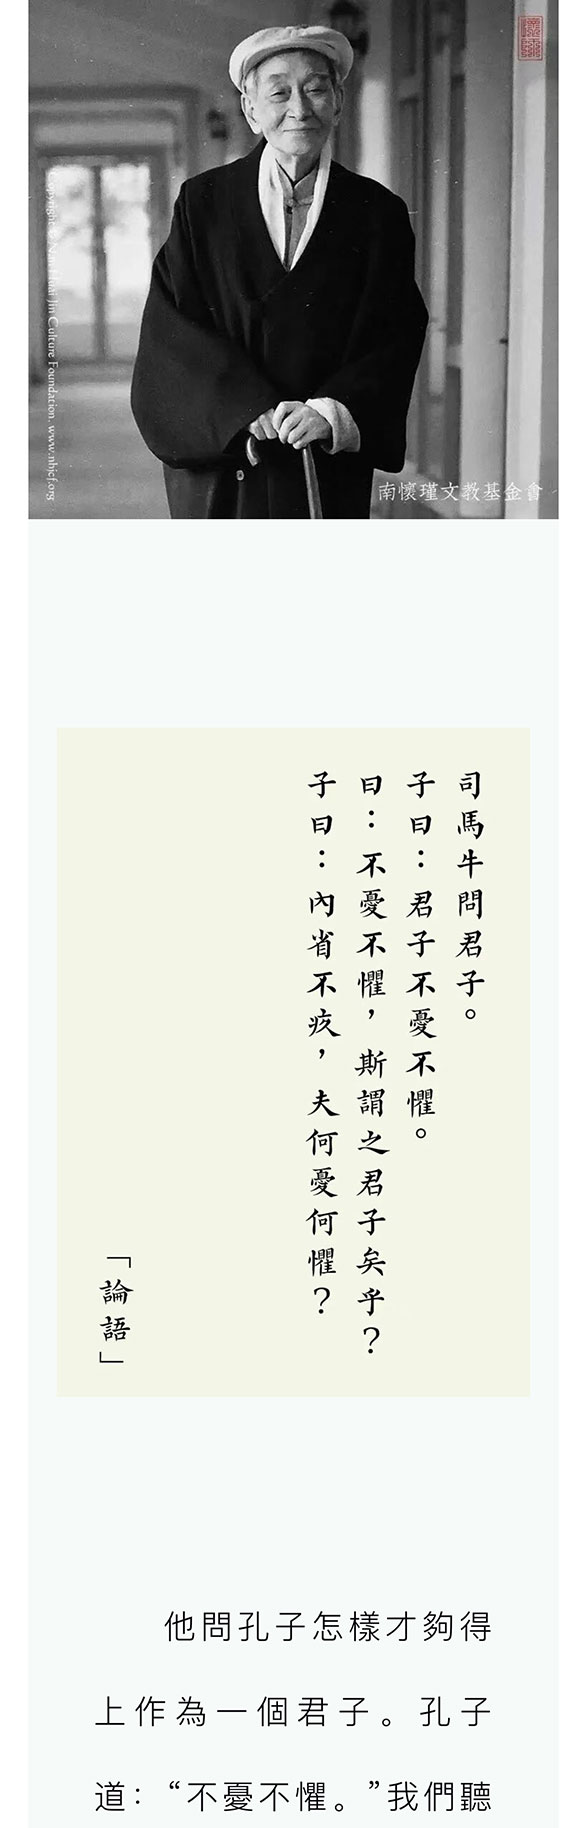 Copyright © Nan Huai Jin Culture Foundation. www.nhjcf.org
南懷瑾文教基金會
司馬牛問君子。
子曰：君子不憂不懼。
曰：不憂不懼，斯謂之君子矣乎？
子曰：內省不疚，夫何憂何懼？
「論語」
他問孔子怎樣才夠得
上作為一個君子。孔子
道：“不憂不懼。”我們聽